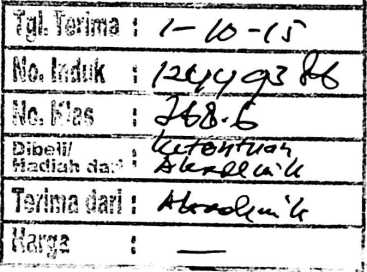 Tgl. Terima : 1-10-15
No. Induk : 12449386
No. Klas : 268.6
Dibeli/ Ketentuan
Hadiah dari : Akademik
Terima dari : Akademik
Harga : —